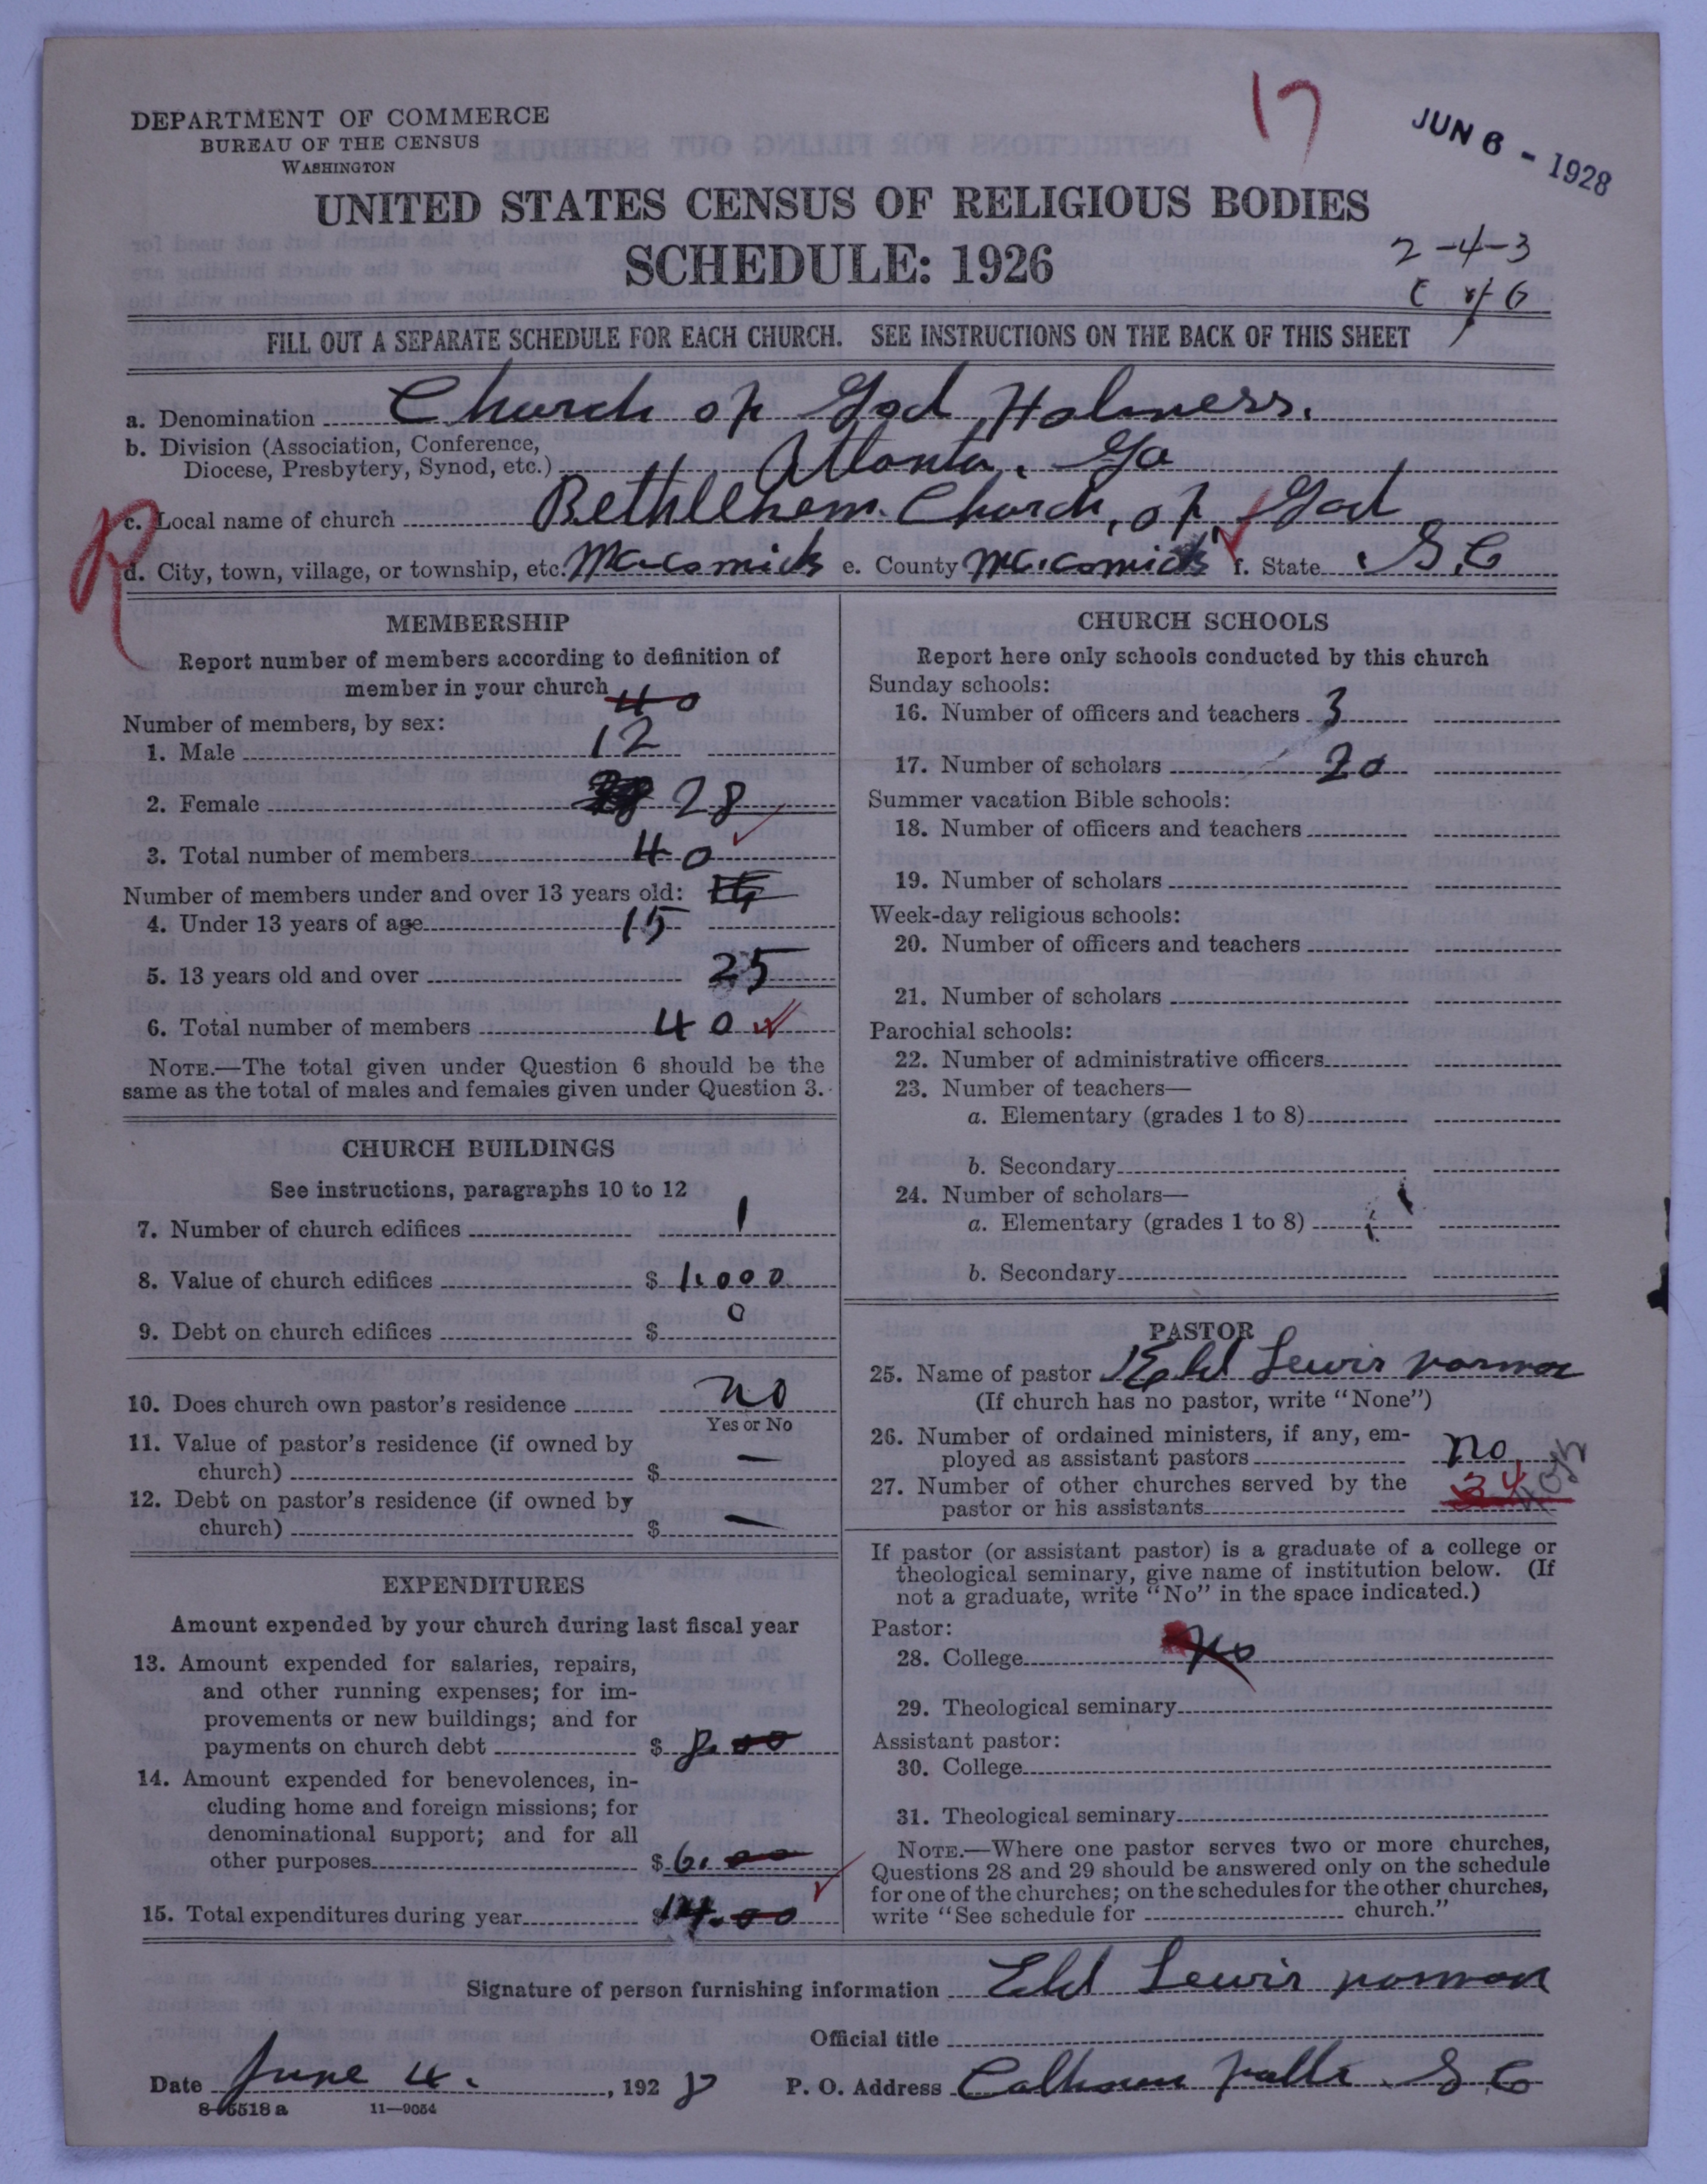 DEPARTMENT OF COMMERCE
BUREAU OF THE CENSUS
WASHINGTON
17
JUN 6 - 1928
UNITED STATES CENSUS OF RELIGIOUS BODIES
SCHEDULE: 1926
2-4-3
C of G
FILL OUT A SEPARATE SCHEDULE FOR EACH CHURCH. SEE INSTRUCTIONS ON THE BACK OF THIS SHEET
a. Denomination Church of God Holiness.
b. Division (Association, Conference,
Diocese, Presbytery, Synod, etc.) Atlanta, Ga
R
c. Local name of church Bethlehem Church of God
d. City, town, village, or township, etc. McCormick e. County McCormick f. State S.C
MEMBERSHIP
Report number of members according to definition of
member in your church 40
Number of members, by sex:
1. Male 12
2. Female 28
3. Total number of members 40
Number of members under and over 13 years old:
4. Under 13 years of age 15
5. 13 years old and over 25
6. Total number of members 40
NOTE.—The total given under Question 6 should be the
same as the total of males and females given under Question 3.
CHURCH BUILDINGS
See instructions, paragraphs 10 to 12
7. Number of church edifices 1
8. Value of church edifices $ 1.000
9. Debt on church edifices $ 0
10. Does church own pastor's residence no
Yes or No
11. Value of pastor's residence (if owned by
church) $ —
12. Debt on pastor's residence (if owned by
church) $ —
EXPENDITURES
Amount expended by your church during last fiscal year
13. Amount expended for salaries, repairs,
and other running expenses; for im-
provements or new buildings; and for
payments on church debt $ 8.00
14. Amount expended for benevolences, in-
cluding home and foreign missions; for
denominational support; and for all
other purposes $ 6.00
15. Total expenditures during year $ 14.00
CHURCH SCHOOLS
Report here only schools conducted by this church
Sunday schools:
16. Number of officers and teachers 3
17. Number of scholars 20
Summer vacation Bible schools:
18. Number of officers and teachers
19. Number of scholars
Week-day religious schools:
20. Number of officers and teachers
21. Number of scholars
Parochial schools:
22. Number of administrative officers
23. Number of teachers—
a. Elementary (grades 1 to 8)
b. Secondary
24. Number of scholars—
a. Elementary (grades 1 to 8)
b. Secondary
PASTOR
25. Name of pastor Eld Lewis Norman
(If church has no pastor, write "None")
26. Number of ordained ministers, if any, em-
ployed as assistant pastors no
27. Number of other churches served by the
pastor or his assistants
If pastor (or assistant pastor) is a graduate of a college or
theological seminary, give name of institution below. (If
not a graduate, write "No" in the space indicated.)
Pastor:
28. College No
29. Theological seminary
Assistant pastor:
30. College
31. Theological seminary
NOTE.—Where one pastor serves two or more churches,
Questions 28 and 29 should be answered only on the schedule
for one of the churches; on the schedules for the other churches,
write "See schedule for church."
Signature of person furnishing information Eld Lewis Norman
Official title
Date June 4. , 1928 P. O. Address Calhoun Falls S C
8-5518 a 11—9054